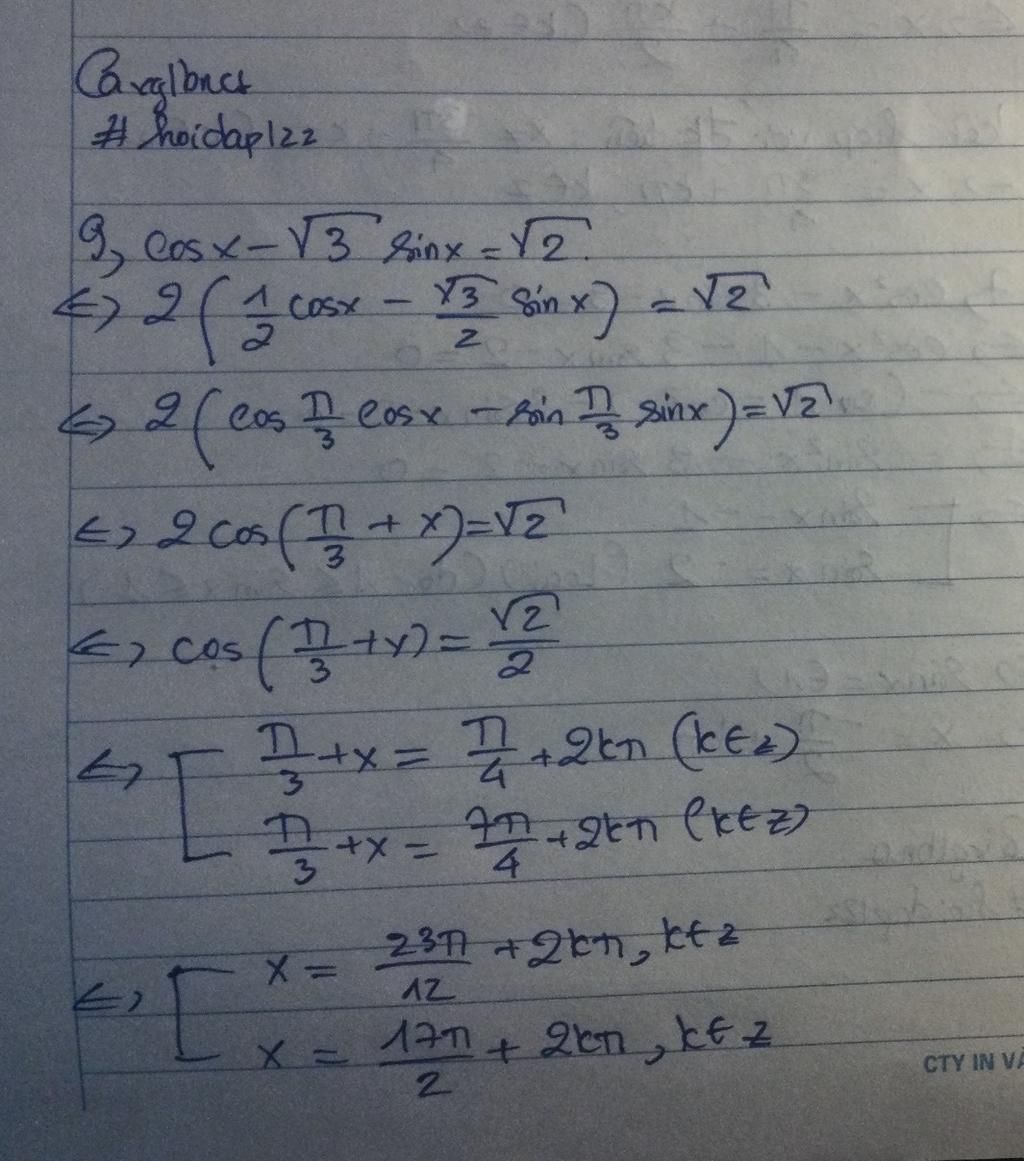 #hoidap122
9, cosx - √3 sinx = √2.
<=> 2(1/2 cosx - √3/2 sinx) = √2
<=> 2(cos π/3 cosx - sin π/3 sinx) = √2
<=> 2cos(π/3 + x) = √2
<=> cos(π/3 + x) = √2/2
<=> [ π/3 + x = π/4 + 2kπ (k∈z)
π/3 + x = 7π/4 + 2kπ (k∈z)
<=> [ x = 23π/12 + 2kπ, k∈z
x = 17π/2 + 2kπ, k∈z
CTY IN